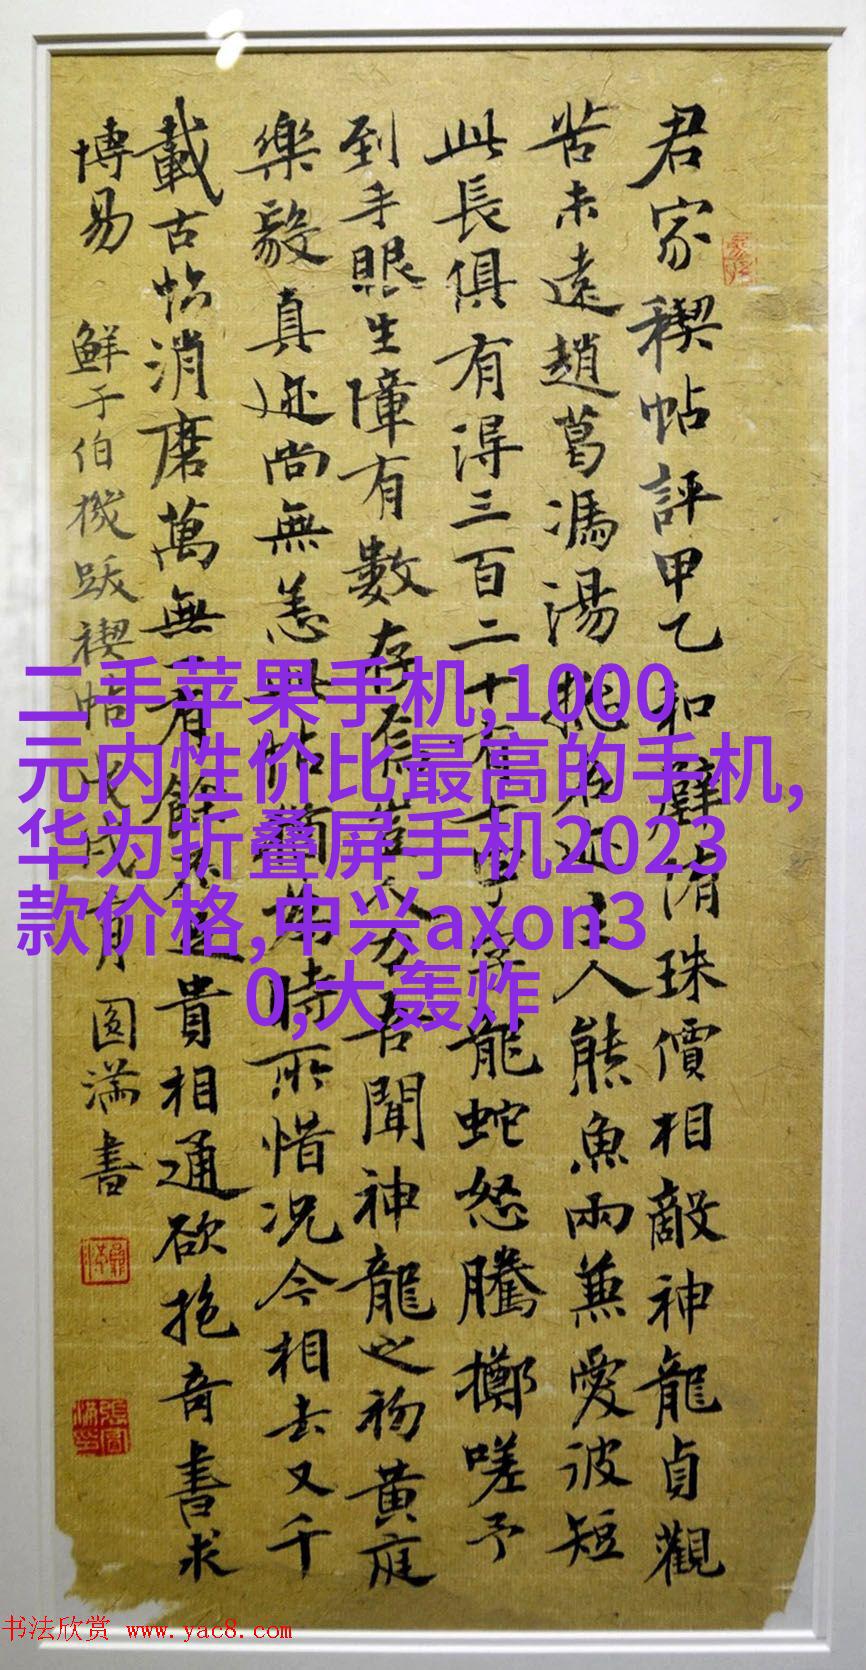 君家稧帖評甲乙和璧隋珠價相敵神龍貞觀
苦未遠趙葛馮湯揔名迹主人熊魚兩兼愛彼短
此長俱有得三百二十有七字龍蛇怒騰擲嗟予
到手眼生障有數存焉豈人力吾聞神龍之初黃庭
樂毅真迹尚無恙此帖猶為時所惜况今相去又千
載古帖消磨萬無一有餘不足貴相通欲抱奇書求
博易 鮮于伯機跋禊帖戊戌月圓滿書
二手苹果手机,1000
元内性价比最高的手机,
华为折叠屏手机2023
款价格,中兴axon3
0,大轰炸
书法欣赏 www.yac8.com